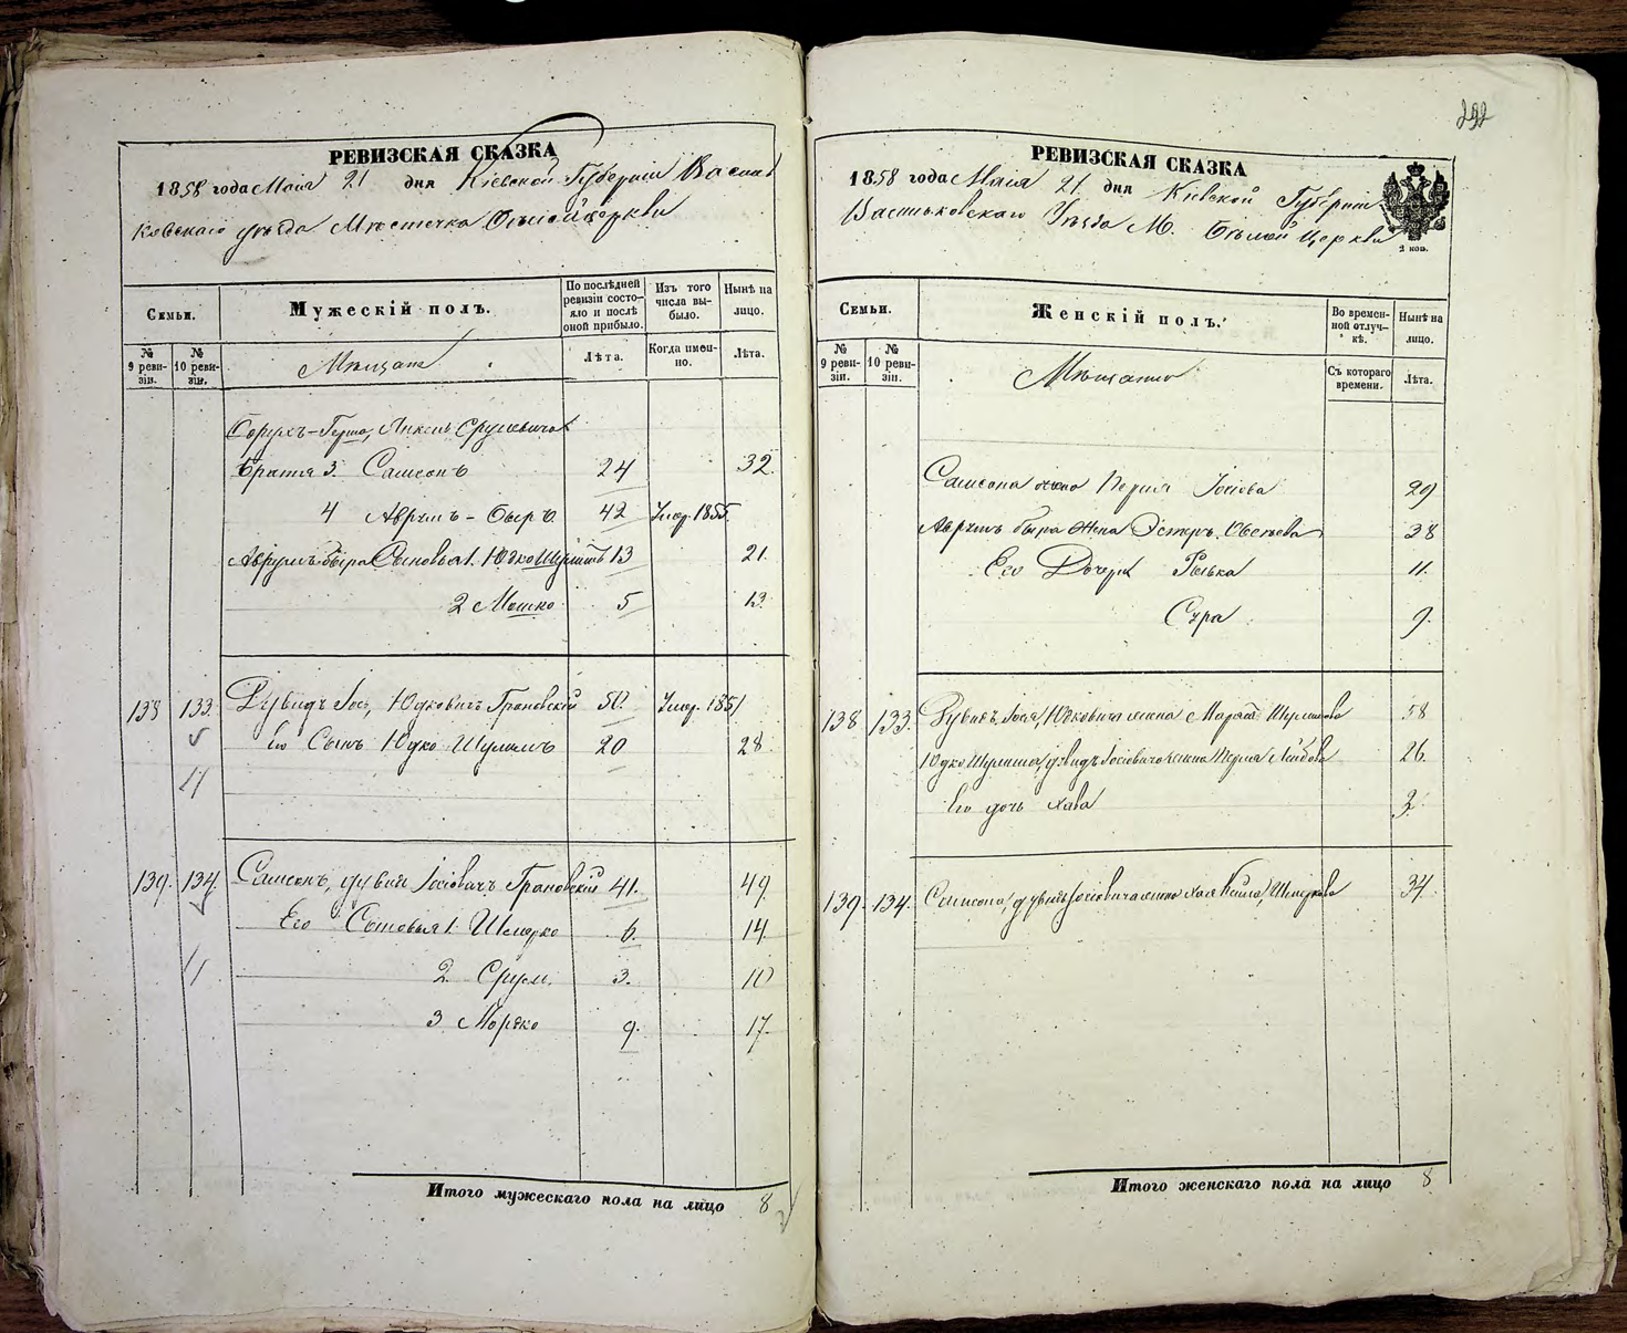 292
РЕВИЗСКАЯ СКАЗКА
1858 года Мая 21 дня Кіевской Губерніи Василь
ковскаго уѣзда Мѣстечка Бѣлой церкви
Семьи.
Мужескій полъ.
По послѣдней ревизіи состо-
яло и послѣ оной прибыло.
Изъ того числа вы-
было.
Нынѣ на лицо.
№ 9 реви-
зіи.
№ 10 реви-
зіи.
Мѣщане
Лѣта.
Когда имен-
но.
Лѣта.
Герша, Янкель Сруловича
Братья 3. Самсонъ 24 32.
4 Аврумъ-Беръ 42 Умер. 1855.
Сыновья 1. Юдко Шулимъ 13 21.
2 Мошко 5 13
138 133. Іось, Юдковичъ Грановскій 50. Умер. 1851
Его Сынъ Юдко Шулимъ 20 28
139. 134. Самсонъ, Іосіовичъ Грановскій 41. 49.
Его Сыновья 1. Шмерко 6. 14.
2. Срул. 3. 10
3 Мордко 9. 17.
Итого мужескаго пола на лицо 8
РЕВИЗСКАЯ СКАЗКА
1858 года Мая 21 дня Кіевской Губерніи
Васильковскаго Уѣзда М. Бѣлой Церкви
2 коп.
Семьи.
Женскій полъ.
Во времен-
ной отлуч-
кѣ.
Нынѣ на лицо.
№ 9 реви-
зіи.
№ 10 реви-
зіи.
Мѣщанки
Съ котораго времени.
Лѣта.
Самсона жена Перля Іосіова 29
Аврумъ Бера Жена Эстеръ 38
Его Дочери Рывка 11.
Сура 9.
138 133. Іося, Юдковича жена Шулимова 58
Юдко Шулима, Іосіовича жена Лейбова 26.
Его дочь Хава 3.
139. 134. Самсона, Іосіовича жена Хая Шмеркова 34.
Итого женскаго пола на лицо 8